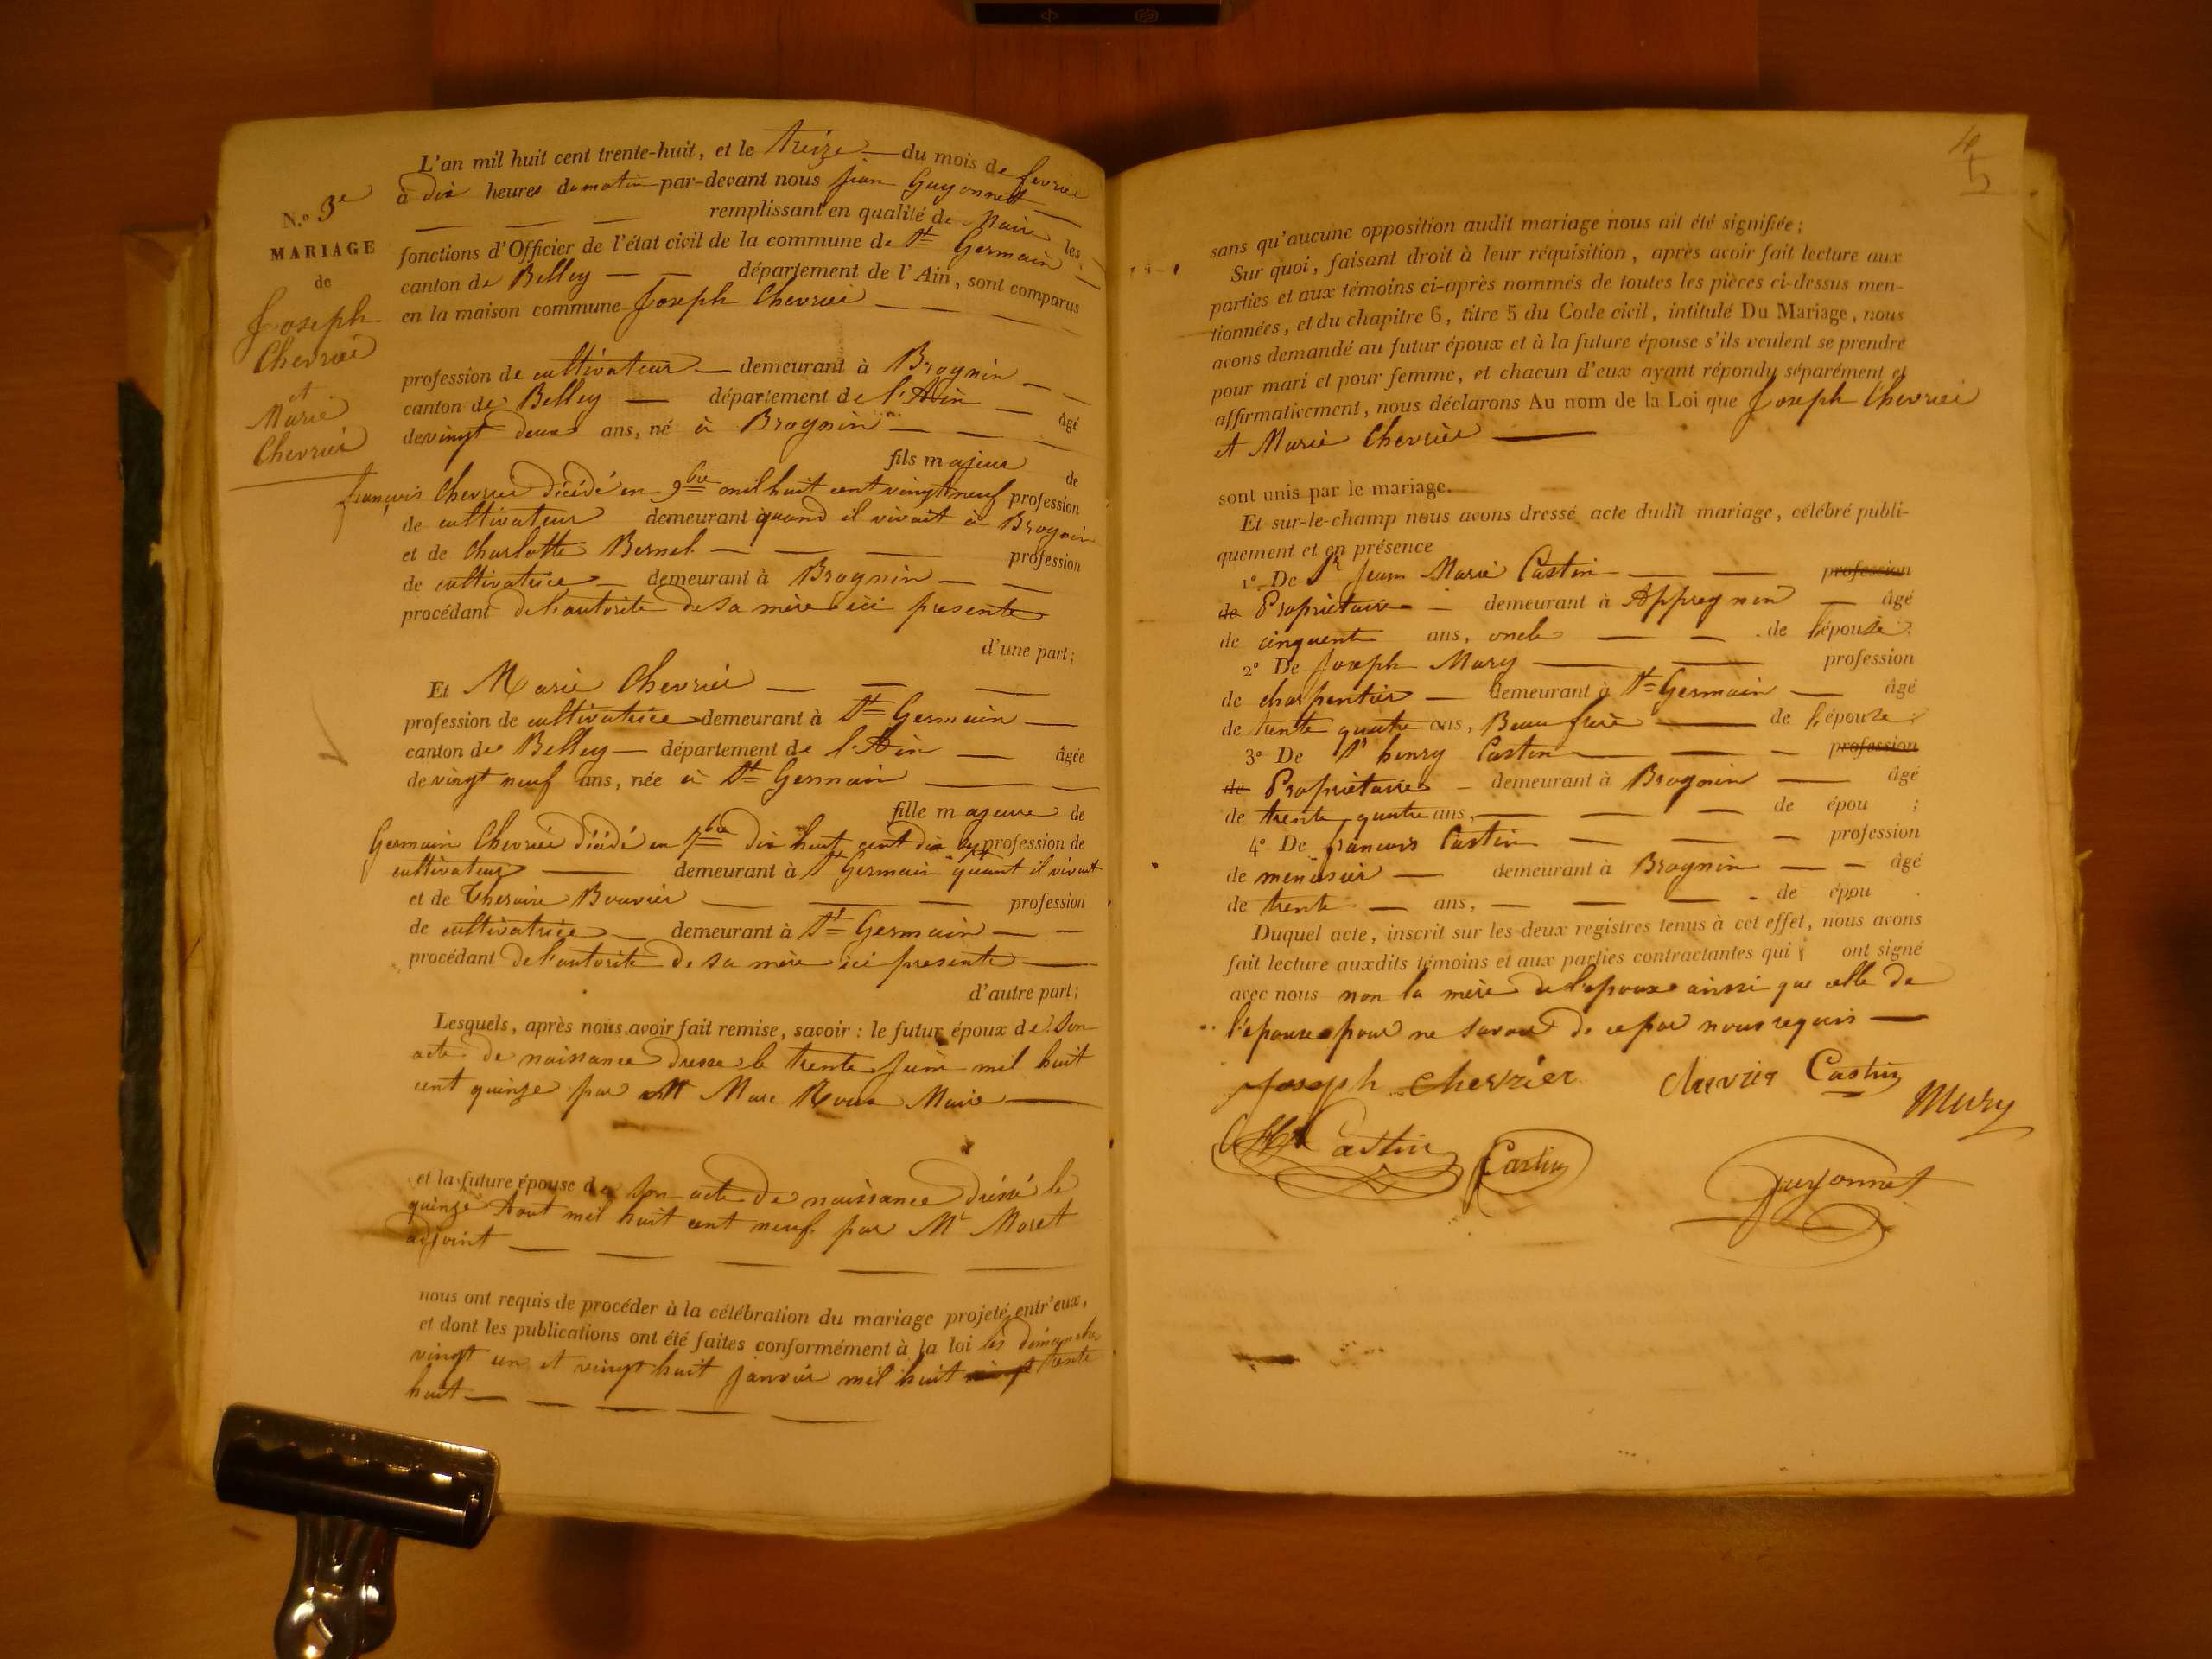 L'an mil huit cent trente-huit, et le treize du mois de fevrier
à dix heures du matin par-devant nous jean Guyonnett
remplissant en qualité de Maire les
fonctions d'Officier de l'état civil de la commune de St Germain
canton de Belley département de l'Ain, sont comparus
en la maison commune Joseph Chevrier
N.o 3e
MARIAGE
de
Joseph
Chevrier
et
Marie
Chevrier
profession de cultivateur demeurant à Brognin
canton de Belley département de l'Ain âgé
de vingt deux ans, né à Brognin
fils majeur de
françois Chevrier décédé en 9bre mil huit cent vingt neuf profession
de cultivateur demeurant quand il vivait à Brognin
et de Charlotte Bernel profession
de cultivatrice demeurant à Brognin
procédant de l'autorite de sa mère ici presente
d'une part;
Et Marie Chevrier
profession de cultivatrice demeurant à St Germain
canton de Belley département de l'Ain âgée
de vingt neuf ans, née à St Germain
fille majeure de
Germain Chevrier décédé en dix huit cent dix profession de
cultivateur demeurant à St Germain quant il vivait
et de Bouvier profession
de cultivatrice demeurant à St Germain
procédant de l'autorite de sa mère ici presente
d'autre part;
Lesquels, après nous avoir fait remise, savoir : le futur époux de son
acte de naissance dresse le trente juin mil huit
cent quinze par Mr Marc Roux Maire
et la future épouse de son acte de naissance dréssé le
quinze Aout mil huit cent neuf par Mr Moret
adjoint
nous ont requis de procéder à la célébration du mariage projeté entr'eux,
et dont les publications ont été faites conformément à la loi les dimanches
vingt un et vingt huit janvier mil huit trente
huit
5
sans qu'aucune opposition audit mariage nous ait été signifiée ;
Sur quoi, faisant droit à leur réquisition, après avoir fait lecture aux
parties et aux témoins ci-après nommés de toutes les pièces ci-dessus men-
tionnées, et du chapitre 6, titre 5 du Code civil, intitulé Du Mariage, nous
avons demandé au futur époux et à la future épouse s'ils veulent se prendre
pour mari et pour femme, et chacun d'eux ayant répondu séparément et
affirmativement, nous déclarons Au nom de la Loi que Joseph Chevrier
et Marie Chevrier
sont unis par le mariage.
Et sur-le-champ nous avons dressé acte dudit mariage, célébré publi-
quement et en présence
1° De Sr Jean Marie Castin profession
de Propriétaire demeurant à Appregnin âgé
de cinquente ans, oncle de l'épouse
2° De Joseph Mury profession
de charpentier demeurant à St Germain âgé
de trente quatre ans, Beau frere de l'épouse ;
3° De Sr henry Castin profession
de Propriétaire demeurant à Brognin âgé
de trente quatre ans, de épou ;
4° De francois Castin profession
de menusier demeurant à Brognin âgé
de trente ans, de épou
Duquel acte, inscrit sur les deux registres tenus à cet effet, nous avons
fait lecture auxdits témoins et aux parties contractantes qui ont signé
avec nous non la mère de l'epoux ainsi que celle de
l'epouse pour ne savoir de ce par nous requis
Joseph chevrier chevrier Castin
Mury
Castin Castin
Guyonnet